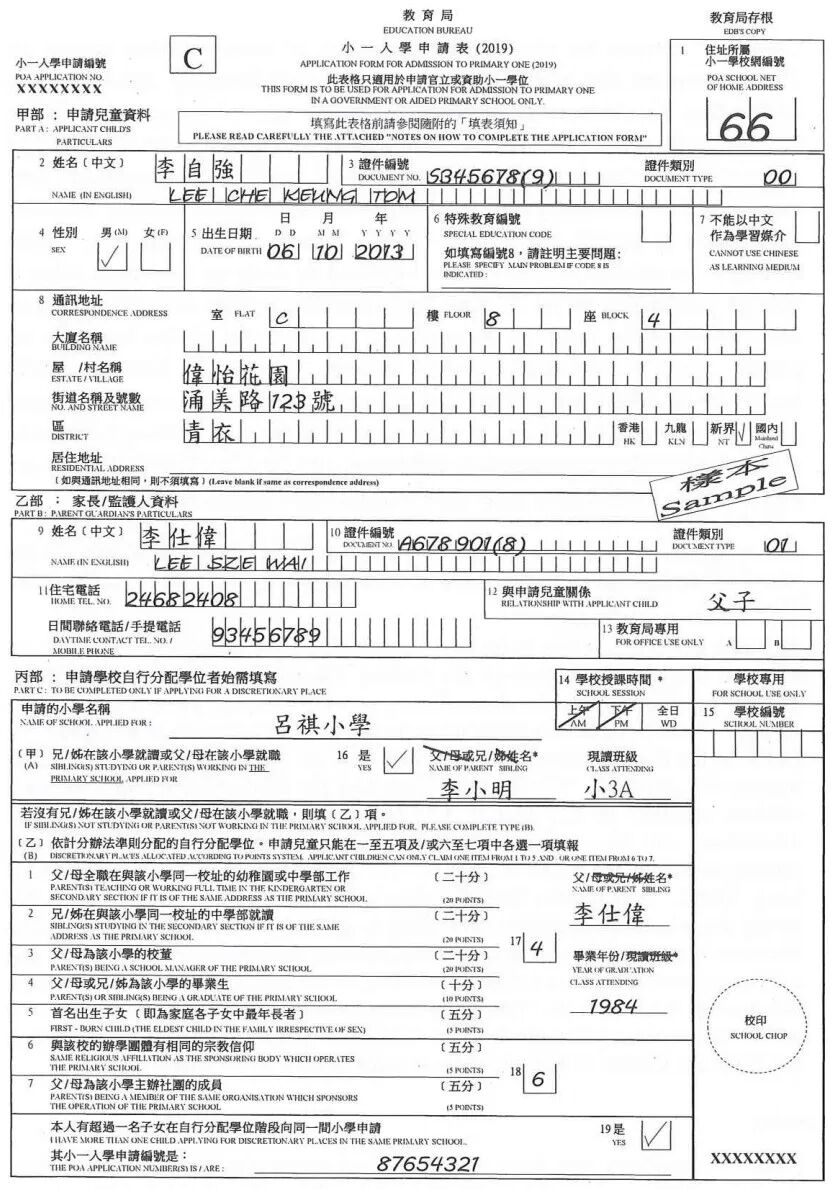 教育局
EDUCATION BUREAU
小一入學申請表 (2019)
APPLICATION FORM FOR ADMISSION TO PRIMARY ONE (2019)
此表格只適用於申請官立或資助小一學位
THIS FORM IS TO BE USED FOR APPLICATION FOR ADMISSION TO PRIMARY ONE
IN A GOVERNMENT OR AIDED PRIMARY SCHOOL ONLY.
教育局存根
EDB'S COPY
小一入學申請編號
POA APPLICATION NO.
XXXXXXXX
C
1 住址所屬
小一學校網編號
POA SCHOOL NET
OF HOME ADDRESS
66
甲部 : 申請兒童資料
PART A : APPLICANT CHILD'S
PARTICULARS
填寫此表格前請參閱隨附的「填表須知」
PLEASE READ CAREFULLY THE ATTACHED "NOTES ON HOW TO COMPLETE THE APPLICATION FORM"
2 姓名 (中文) 李自強 3 證件編號 DOCUMENT NO. S345678(9) 證件類別 DOCUMENT TYPE 00
NAME (IN ENGLISH) LEE CHE KEUNG TOM
4 性別 SEX 男 (M) ✓ 女 (F)
5 出生日期 DATE OF BIRTH
日 月 年
D D M M Y Y Y Y
06 10 2013
6 特殊教育編號
SPECIAL EDUCATION CODE
如填寫編號8，請註明主要問題:
PLEASE SPECIFY MAIN PROBLEM IF CODE 8 IS
INDICATED :
7 不能以中文
作為學習媒介
CANNOT USE CHINESE
AS LEARNING MEDIUM
8 通訊地址
CORRESPONDENCE ADDRESS
室 FLAT C 樓 FLOOR 8 座 BLOCK 4
大廈名稱
BUILDING NAME
屋 /村名稱
ESTATE / VILLAGE
偉怡花園
街道名稱及號數
NO. AND STREET NAME
涌美路123號
區
DISTRICT
青衣
香港 HK 九龍 KLN 新界 NT ✓ 國內 Mainland China
居住地址
RESIDENTIAL ADDRESS
(如與通訊地址相同，則不須填寫) (Leave blank if same as correspondence address)
樣本
Sample
乙部 : 家長/監護人資料
PART B : PARENT GUARDIAN'S PARTICULARS
9 姓名 (中文) 李仕偉 10 證件編號 DOCUMENT NO. A678901(8) 證件類別 DOCUMENT TYPE 01
NAME (IN ENGLISH) LEE SZE WAI
11 住宅電話
HOME TEL. NO. 24682408
12 與申請兒童關係
RELATIONSHIP WITH APPLICANT CHILD 父子
日間聯絡電話/手提電話
DAYTIME CONTACT TEL. NO. /
MOBILE PHONE
93456789
13 教育局專用
FOR OFFICE USE ONLY A B
丙部 : 申請學校自行分配學位者始需填寫
PART C : TO BE COMPLETED ONLY IF APPLYING FOR A DISCRETIONARY PLACE
14 學校授課時間 *
SCHOOL SESSION
上午 AM 下午 PM 全日 WD
學校專用
FOR SCHOOL USE ONLY
15 學校編號
SCHOOL NUMBER
申請的小學名稱
NAME OF SCHOOL APPLIED FOR :
呂祺小學
(甲) 兄/姊在該小學就讀或父/母在該小學就職
(A) SIBLING(S) STUDYING OR PARENT(S) WORKING IN THE
PRIMARY SCHOOL APPLIED FOR
16 是
YES ✓
父/母或兄/姊姓名*
NAME OF PARENT SIBLING
李小明
現讀班級
CLASS ATTENDING
小3A
若沒有兄/姊在該小學就讀或父/母在該小學就職，則填 (乙) 項。
IF SIBLING(S) NOT STUDYING OR PARENT(S) NOT WORKING IN THE PRIMARY SCHOOL APPLIED FOR. PLEASE COMPLETE TYPE (B).
(乙) 依計分辦法準則分配的自行分配學位。申請兒童只能在一至五項及/或六至七項中各選一項填報
(B) DISCRETIONARY PLACES ALLOCATED ACCORDING TO POINTS SYSTEM. APPLICANT CHILDREN CAN ONLY CLAIM ONE ITEM FROM 1 TO 5 AND OR ONE ITEM FROM 6 TO 7.
1 父/母全職在與該小學同一校址的幼稚園或中學部工作 (二十分)
PARENT(S) TEACHING OR WORKING FULL TIME IN THE KINDERGARTEN OR
SECONDARY SECTION IF IT IS OF THE SAME ADDRESS AS THE PRIMARY SCHOOL (20 POINTS)
2 兄/姊在與該小學同一校址的中學部就讀 (二十分)
SIBLING(S) STUDYING IN THE SECONDARY SECTION IF IT IS OF THE SAME
ADDRESS AS THE PRIMARY SCHOOL (20 POINTS)
3 父/母為該小學的校董 (二十分)
PARENT(S) BEING A SCHOOL MANAGER OF THE PRIMARY SCHOOL (20 POINTS)
4 父/母或兄/姊為該小學的畢業生 (十分)
PARENT(S) OR SIBLING(S) BEING A GRADUATE OF THE PRIMARY SCHOOL (10 POINTS)
5 首名出生子女 (即為家庭各子女中最年長者) (五分)
FIRST - BORN CHILD (THE ELDEST CHILD IN THE FAMILY IRRESPECTIVE OF SEX) (5 POINTS)
17 4
父/母或兄/姊姓名*
NAME OF PARENT SIBLING
李仕偉
畢業年份/現讀班級*
YEAR OF GRADUATION
CLASS ATTENDING
1984
6 與該校的辦學團體有相同的宗教信仰 (五分)
SAME RELIGIOUS AFFILIATION AS THE SPONSORING BODY WHICH OPERATES
THE PRIMARY SCHOOL (5 POINTS)
7 父/母為該小學主辦社團的成員 (五分)
PARENT(S) BEING A MEMBER OF THE SAME ORGANISATION WHICH SPONSORS
THE OPERATION OF THE PRIMARY SCHOOL (5 POINTS)
18 6
校印
SCHOOL CHOP
本人有超過一名子女在自行分配學位階段向同一間小學申請
I HAVE MORE THAN ONE CHILD APPLYING FOR DISCRETIONARY PLACES IN THE SAME PRIMARY SCHOOL.
19 是
YES ✓
其小一入學申請編號是：
THE POA APPLICATION NUMBER(S) IS / ARE : 87654321
XXXXXXXX